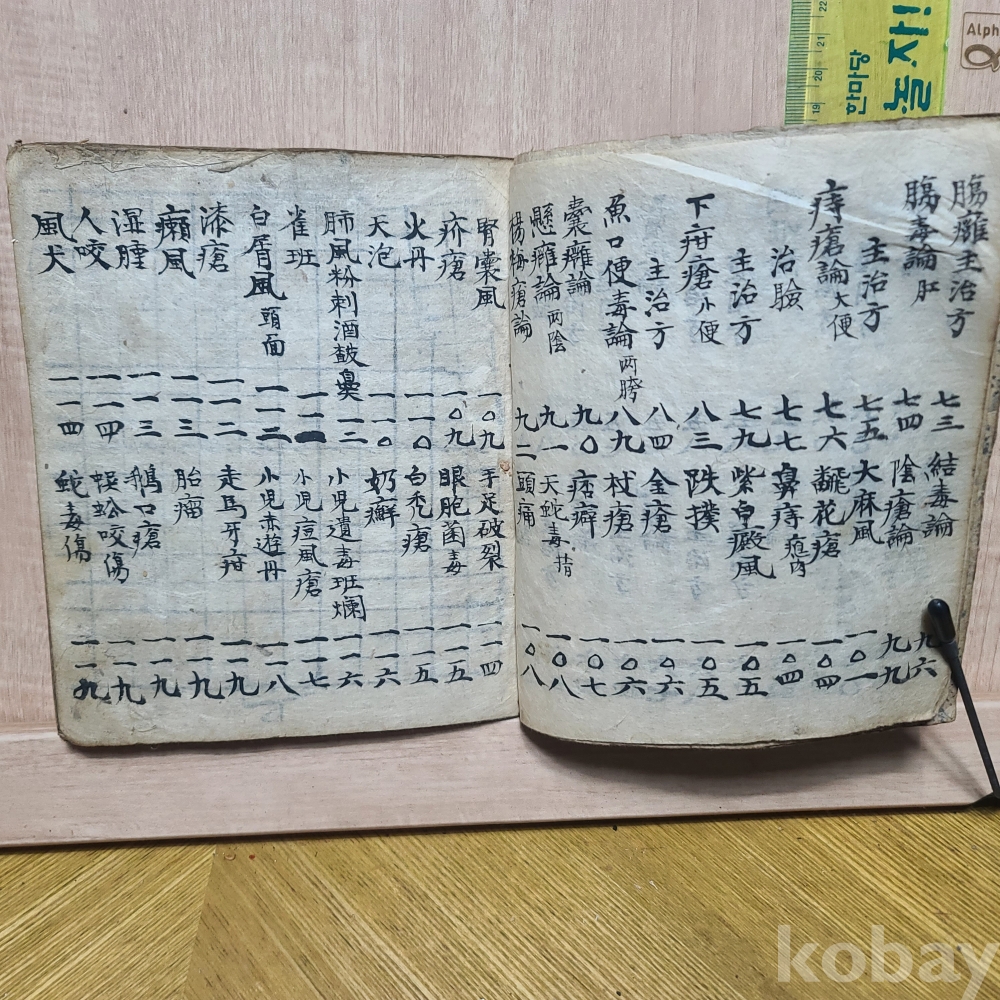 腸癰主治方 七三
腸毒論 肛 七四
主治方 七五
痔瘡論 大便 七六
治驗 七七
主治方 七九
下疳瘡 小便 八三
主治方 八四
魚口便毒論 两胯 八九
囊癰論 九〇
懸癰論 两陰 九一
楊梅瘡論 九二
結毒論 九六
陰瘡論 九九
大麻風 一〇一
翻花瘡 一〇四
鼻痔 一〇四
紫白癜風 一〇五
跌撲 一〇五
金瘡 一〇六
杖瘡 一〇六
痞癖 一〇七
天蛇毒 指 一〇八
頭痛 一〇八
腎囊風 一〇九
疥瘡 一〇九
火丹 一一〇
天泡 一一〇
肺風粉刺酒皶鼻 一一二
雀斑
白屑風 頭面 一一二
漆瘡 一一二
癩風 一一三
濕腫 一一三
人咬 一一四
風犬 一一四
手足破裂 一一四
眼胞菌毒 一一五
白禿瘡 一一五
奶癬 一一六
小児遺毒班爛 一一六
小児痘風瘡 一一七
小児赤遊丹 一一八
走馬牙疳 一一九
胎瘤 一一九
鵝口瘡 一一九
蜈蚣咬傷 一一九
蛇毒傷 一一九
한마당
놀자!
Alph
19 20 21 22
kobay